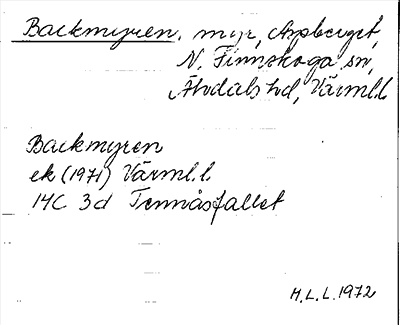 Backmyren, myr, Aspberget,
N. Finnskoga sn,
Älvdals hd, Värml. l.
Backmyren
ek (1971) Värml. l.
14C 3d Tennåsfallet
M.L.L. 1972